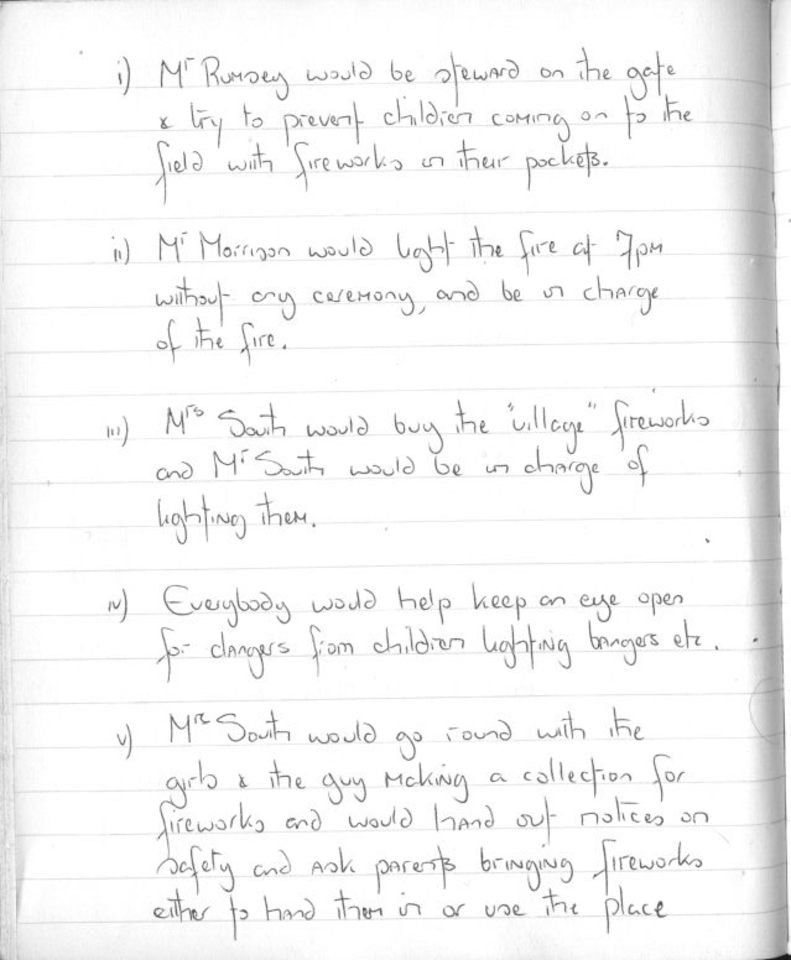 i) Mr Rumsey would be steward on the gate
& try to prevent children coming on to the
field with fireworks in their pockets.
ii) Mr Morrison would light the fire at 7pm
without any ceremony, and be in charge
of the fire.
iii) Mrs South would buy the "village" fireworks
and Mr South would be in charge of
lighting them.
iv) Everybody would help keep an eye open
for dangers from children lighting bangers etc.
v) Mr South would go round with the
girls & the guy making a collection for
fireworks and would hand out notices on
safety and ask parents bringing fireworks
either to hand them in or use the place